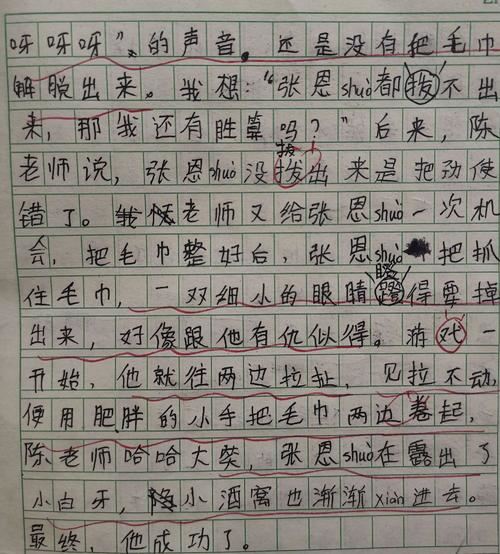 呀呀呀”的声音。还是没有把毛巾
解脱出来。我想:“张恩shuò都拨不出
来,那我还有胜算吗?”后来,陈
拔
老师说,张恩shuò没拨出来是把劲使
错了。陈老师又给张恩shuò一次机
会,把毛巾整好后,张恩shuò一把抓
瞪
住毛巾,一双细小的眼睛蹬得要掉
出来,好像跟他有仇似得。游戏一
开始,他就往两边拉扯,见拉不动,
便用肥胖的小手把毛巾两边卷起,
陈老师哈哈大笑,张恩shuò在露出了
小白牙,小酒窝也渐渐xiàn进去。
最终,他成功了。